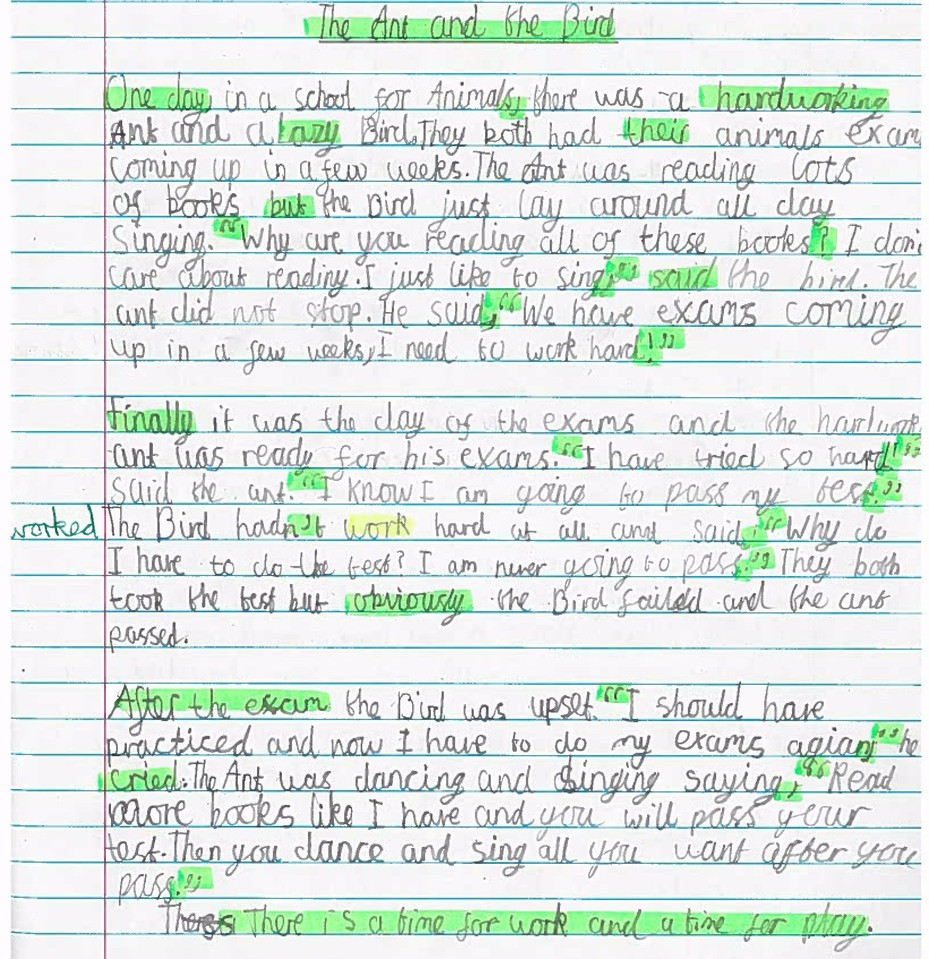 The Ant and the Bird
One day in a school for Animals, there was a hardworking
Ant and a Lazy Bird. They both had their animals exam
coming up in a few weeks. The Ant was reading Lots
of books but the Bird just lay around all day
Singing. "Why are you reading all of these books? I don
care about reading. I just like to sing," said the bird. The
ant did not stop. He said, "We have exams coming
up in a few weeks, I need to work hard!"
Finally it was the day of the exams and the hardwork
ant was ready for his exams. "I have tried so hard!"
Said the ant. "I know I am going to pass my test."
worked The Bird hadn't work hard at all and said, "Why do
I have to do the test? I am never going to pass." They both
took the test but obviously the Bird failed and the ant
passed.
After the exam the Bird was upset. "I should have
practiced and now I have to do my exams agian," he
cried. The Ant was dancing and singing saying, "Read
more books like I have and you will pass your
test. Then you dance and sing all you want after you
pass."
There is a time for work and a time for play.